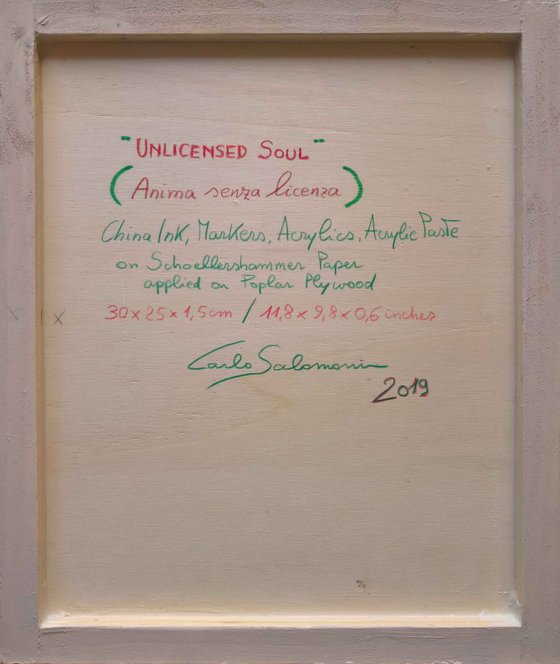 "UNLICENSED SOUL"
(Anima senza licenza)
China Ink, Markers, Acrylics, Acrylic Paste
on Schoellershammer Paper
applied on Poplar Plywood
30 x 25 x 1,5 cm / 11,8 x 9,8 x 0,6 inches
Carlo Salomoni
2019